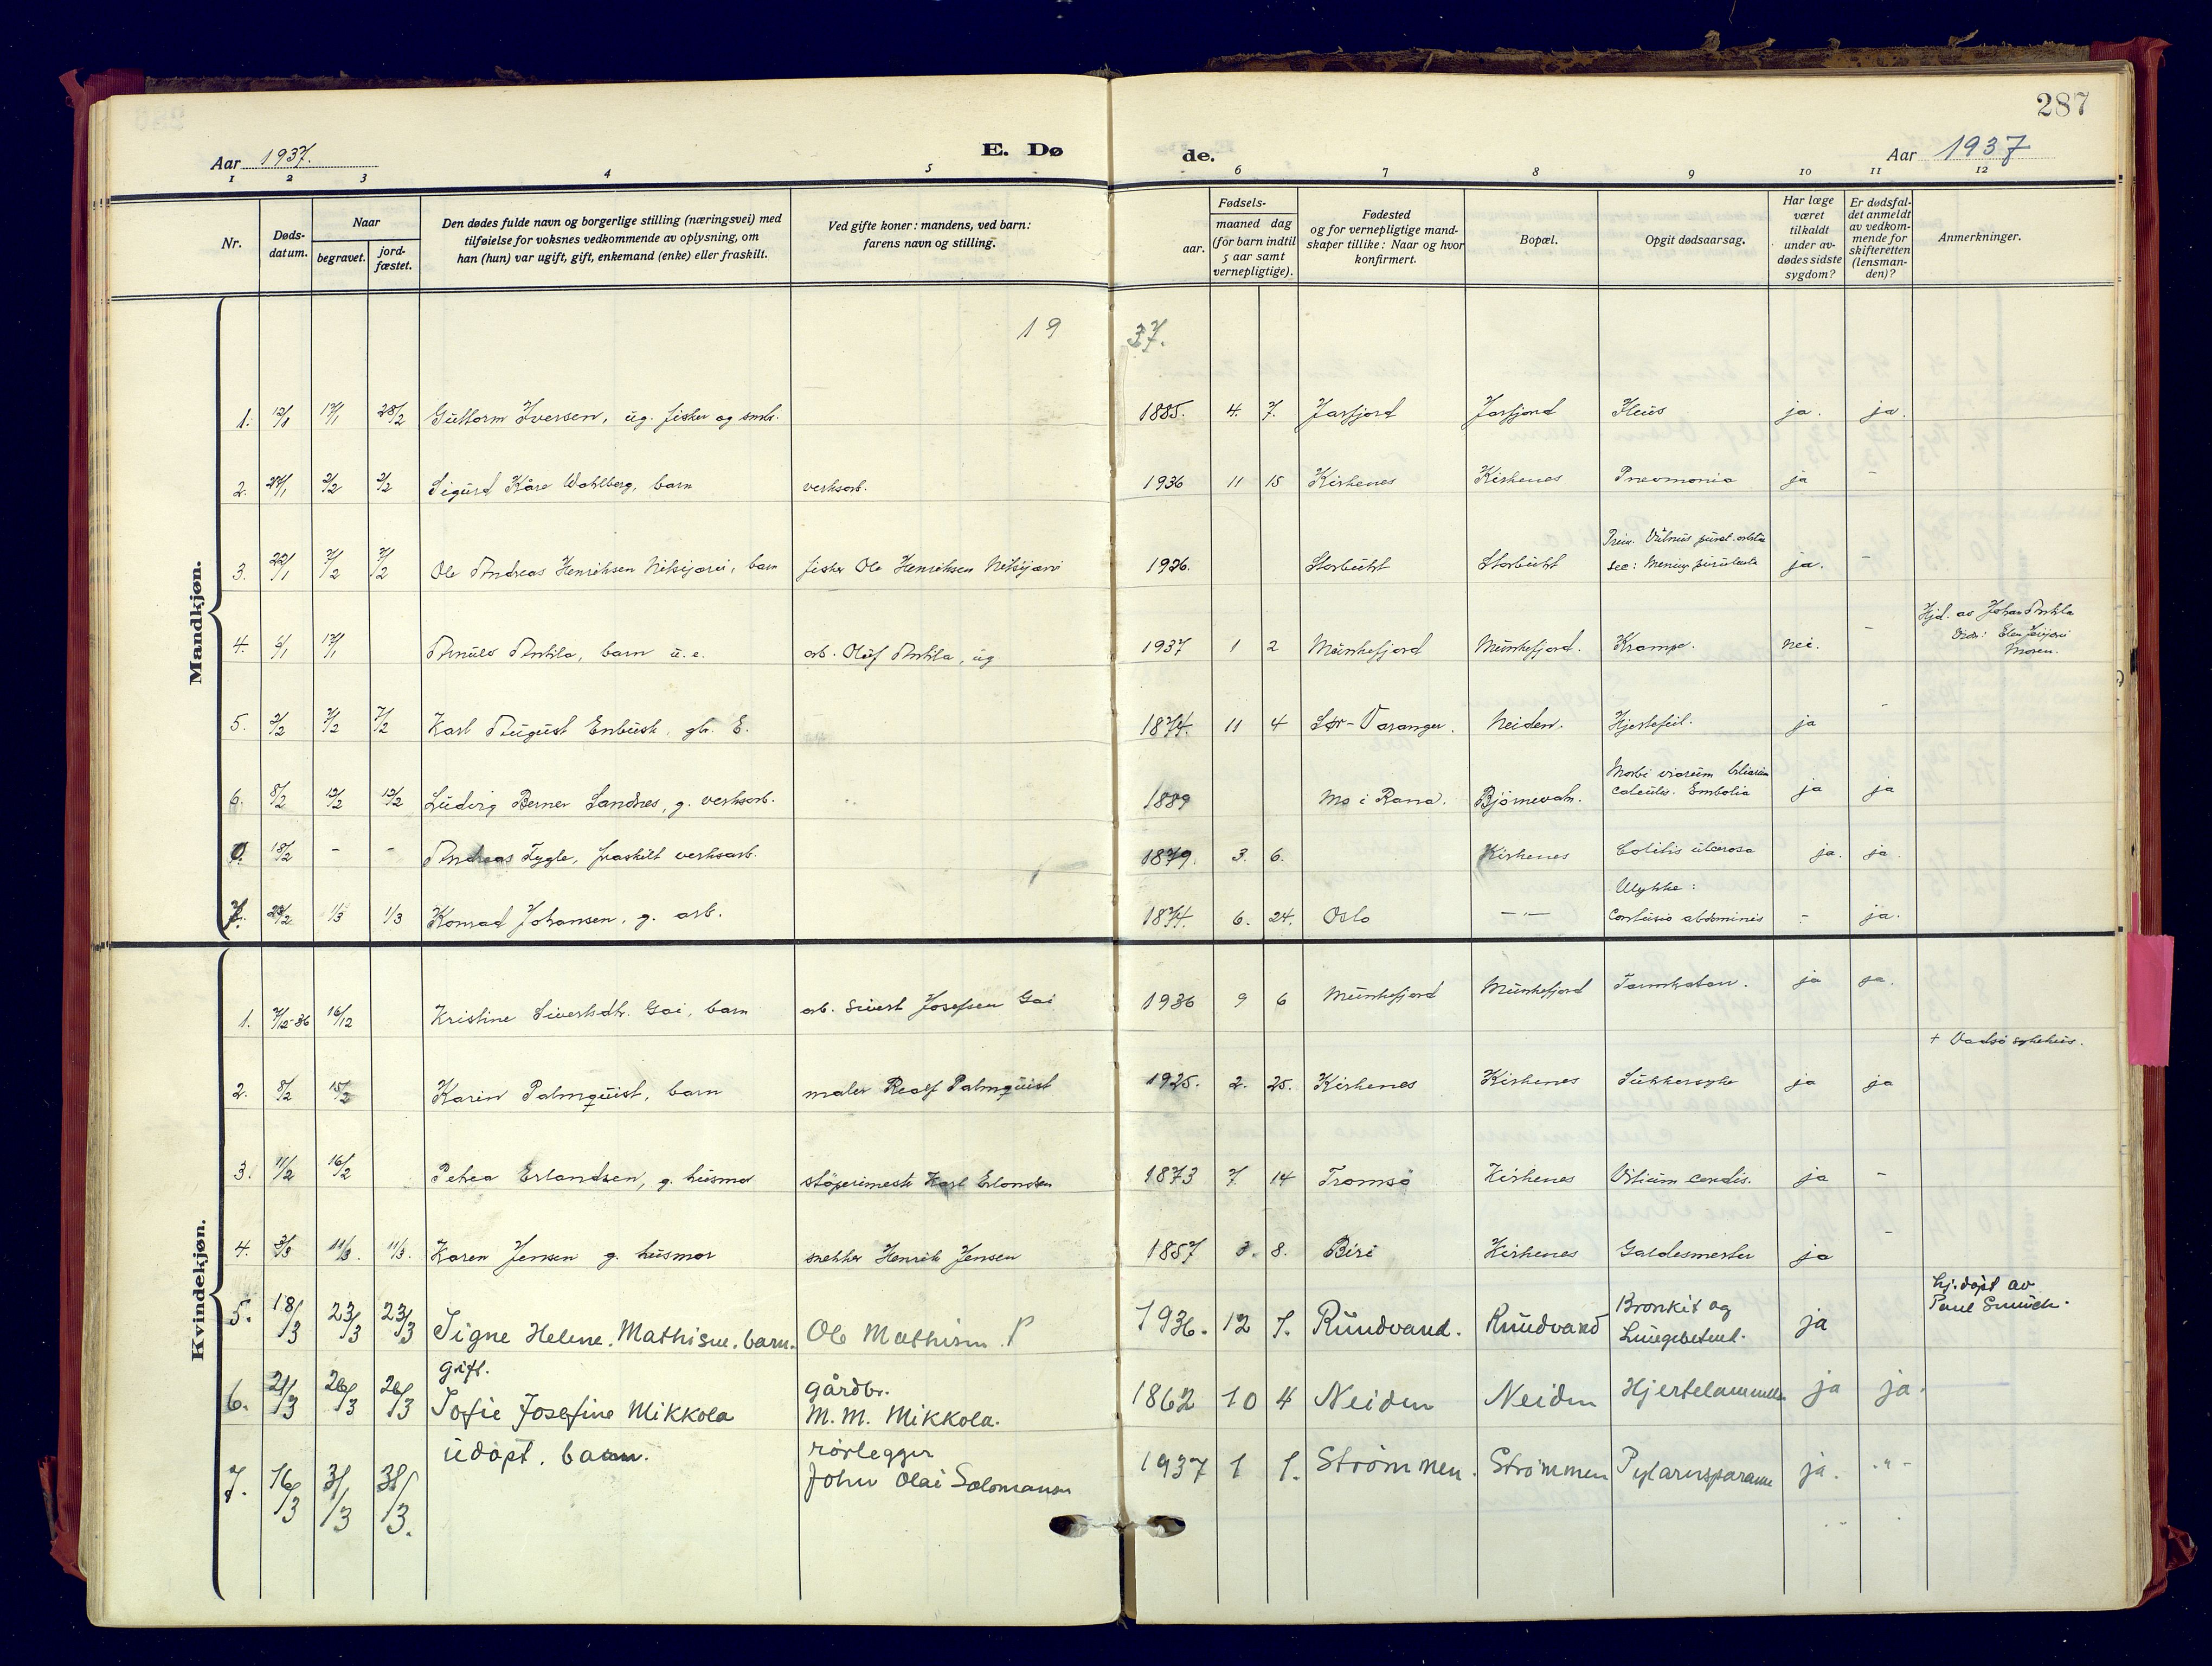 287
Aar 1937. E. Dø de. Aar 1937
1 2 3 4 5 6 7 8 9 10 11 12
Nr. Døds-datum. Naar begravet. jord-fæstet. Den dødes fulde navn og borgerlige stilling (næringsvei) med tilføielse for voksnes vedkommende av oplysning, om han (hun) var ugift, gift, enkemand (enke) eller fraskilt. Ved gifte koner: mandens, ved barn: farens navn og stilling. Fødsels- aar. maaned dag (for barn indtil 5 aar samt vernepligtige). Fødested og for vernepligtige mandskaper tillike: Naar og hvor konfirmert. Bopæl. Opgit dødsaarsag. Har læge været tilkaldt under av-dødes sidste sygdom? Er dødsfal-det anmeldt av vedkom-mende for skifteretten (lensman-den)? Anmerkninger.
19 37.
Mandkjøn.
1. 12/1 17/1 28/2 Guttorm Iversen, ug. fisker og smbr. 1885. 4. 7. Jarfjord Jarfjord Ileus ja. ja.
2. 2/2 2/2 Sigurd Kåre Wahlberg, barn verksarb. 1936 11 15 Kirkenes Kirkenes Pneumonia ja -
3. 22/1 7/2 7/2 Ole Andreas Henriksen barn fisker Ole Henriksen 1936. Storbukt Storbukt Prim. sec: Mening. purulenta ja. -
4. 6/1 17/1 Anttila, barn u.e. arb. Oluf Anttila, ug 1937 1 2 Munkefjord Munkefjord. Krampe. nei. - Hjd. av Johan Anttila moren.
5. 2/2 7/2 7/2 Karl August Enbusk, gbr. E. 1874. 11 4 Sør-Varanger. Neiden. Hjertefeil. ja -
6. 8/2 12/2 12/2 Ludvig Berner Sandnes, g. verksarb. 1889 Mo i Rana. Bjørnevatn. Morbi viarum biliarum calculis. Embolia ja ja
0. 18/2 - - Andreas Tygle, fraskilt verksarb. 1879. 3. 6. Kirkenes Colitis ulcerosa ja. ja.
7. 23/2 1/3 1/3 Konrad Johansen, g. arb. 1874. 6. 24. Oslo -"- Ulykke: Contusio abdominis - ja.
Kvindekjøn.
1. 7/12-36 16/12 Kristine Sivertsdtr. Gai, barn arb. Sivert Josefsen Gai 1936 9 6 Munkefjord Munkefjord Tarmkatarr. ja ja.
2. 8/2 15/2 Karin Palmquist, barn maler Rolf Palmquist 1925. 2. 25. Kirkenes Kirkenes Sukkersyke ja ja + Vadsø sykehus.
3. 11/2 16/2 Petrea Erlandsen, g. husmor støperimestr Karl Erlandsen 1873 7 14 Tromsø Kirkenes Vitium cordis. ja -
4. 3/3 11/3. 11/3. Karen Jensen g. husmor snekker Henrik Jensen 1857 3. 8. Biri Kirkenes Galdesmerter ja -
5. 18/3 23/3 23/3 Signe Helene. Mathisen. barn. Ole Mathisen. 1936. 12 1. Rundvand. Rundvand Bronkit og Lungebetend. ja hj. døpt av Paul
6. 21/3 26/3 26/3 gift. Sofie Josefine Mikkola gårdbr. M. M. Mikkola. 1862 10 4 Neiden Neiden Hjertelammelse ja ja.
7. 16/3 31/3 31/3. udøpt. barn. rørlegger John Olai Salomonsen 1937 1 1. Strømmen. Strømmen ja. -"-